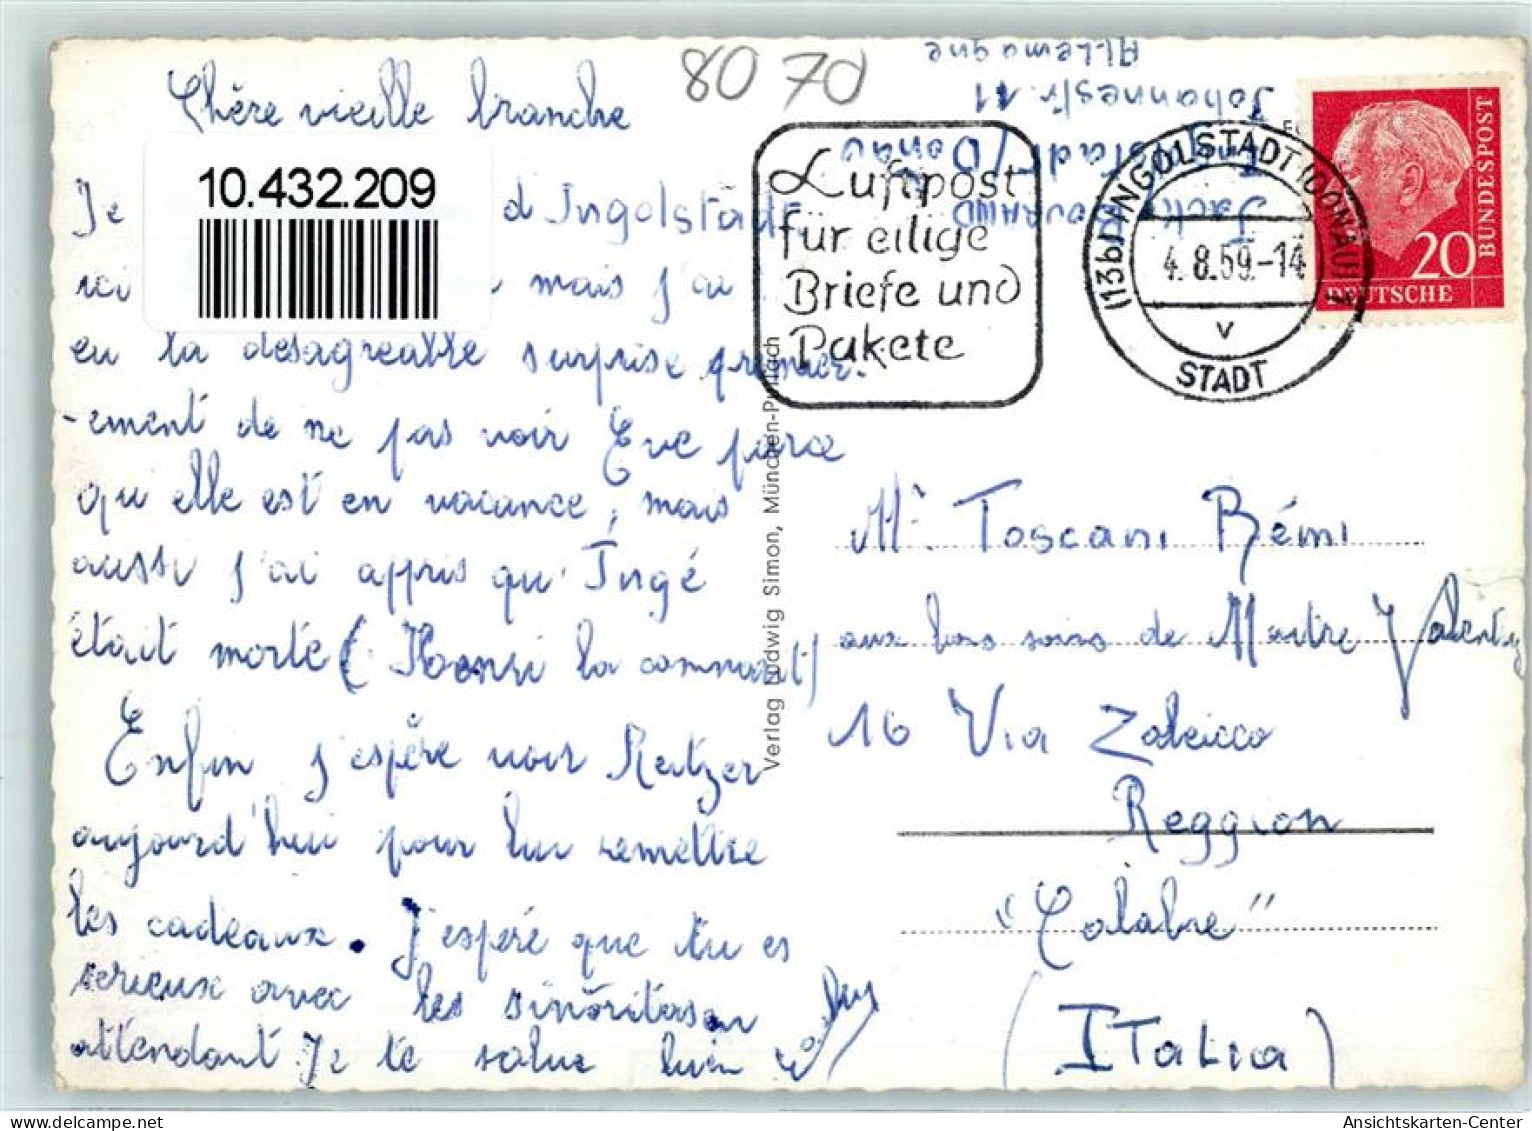 80 7d
Chère vieille branche
10.432.209
Je d Ingolstadt
ici mais j'ai
eu la desagreable surprise
-ement de ne pas voir Eve parce
qu elle est en vacance, mais
aussi j'ai appris qu'Ingé
était morte ( Henri la connait)
Enfin j'espère voir Reitzer
aujourd'hui pour lui remettre
les cadeaux. J'espère que tu es
serieux avec les sinöritas en
attendant Je te salue bien
Jacky BOURAND
Ingolstadt/Donau
Johannestr. 11
Allemagne
Luftpost
für eilige
Briefe und
Pakete
(13b) INGOLSTADT (DONAU) 1
4.8.59.-14
v
STADT
20
DEUTSCHE
BUNDESPOST
Verlag Ludwig Simon, München-Pullach
Mr Toscani Rémi
aux bons soins de Maitre
16 Via Zaleicco
Reggion
"Calabre"
(ITaLia)
Ansichtskarten-Center